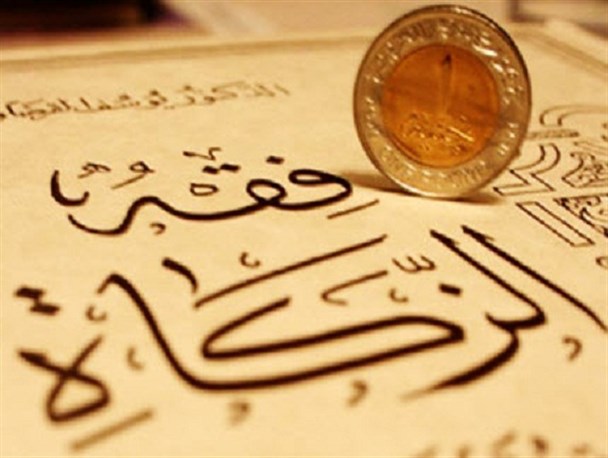 الدكتور يوسف القرضاوي
فقه
الزكاة
١